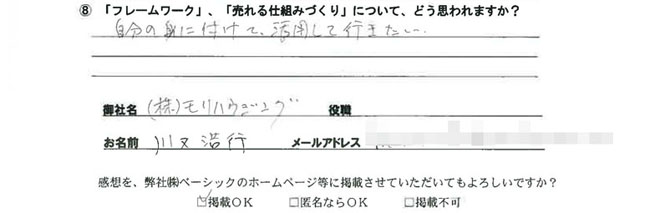 ⑧ 「フレームワーク」、「売れる仕組みづくり」について、どう思われますか?
自分の身に付けて、活用して行きたい。
御社名 (株)モリハウジング 役職
お名前 川又 浩行 メールアドレス
感想を、弊社㈱ベーシックのホームページ等に掲載させていただいてもよろしいですか?
☑掲載OK □匿名ならOK □掲載不可